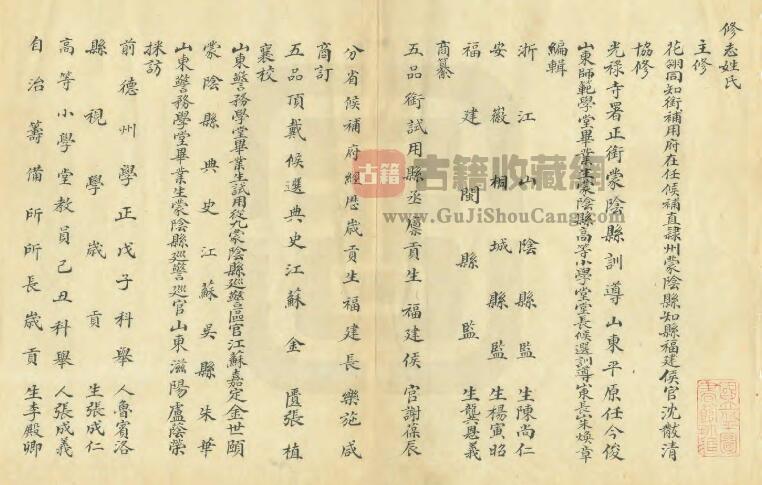 修志姓氏
主修
花翎同知銜補用府在任候補直隸州蒙陰縣知縣福建侯官沈黻清
協修
光祿寺署正銜蒙陰縣訓導山東平原任今俊
山東師範學堂畢業生蒙陰縣高等小學堂堂長候選訓導山東長山朱煥章
編輯
浙江山陰縣監生陳尚仁
安徽桐城縣監生楊寅昭
福建閩縣監生龔恩義
商纂
五品銜試用縣丞廪貢生福建侯官謝葆辰
分省候補府經歷歲貢生福建長樂施咸
商訂
五品頂戴候選典史江蘇金匱張植
襄校
山東警務學堂畢業生試用從九蒙陰縣巡警區官江蘇嘉定金世頤
蒙陰縣典史江蘇吳縣朱華
山東警務學堂畢業生蒙陰縣巡警巡官山東滋陽盧蔭榮
採訪
前德州學正戊子科舉人魯賓洛
縣視學歲貢生張成仁
高等小學堂教員己丑科舉人張成義
自治籌備所所長歲貢生李殿卿
古籍
古籍收藏網
www.GuJiShouCang.com